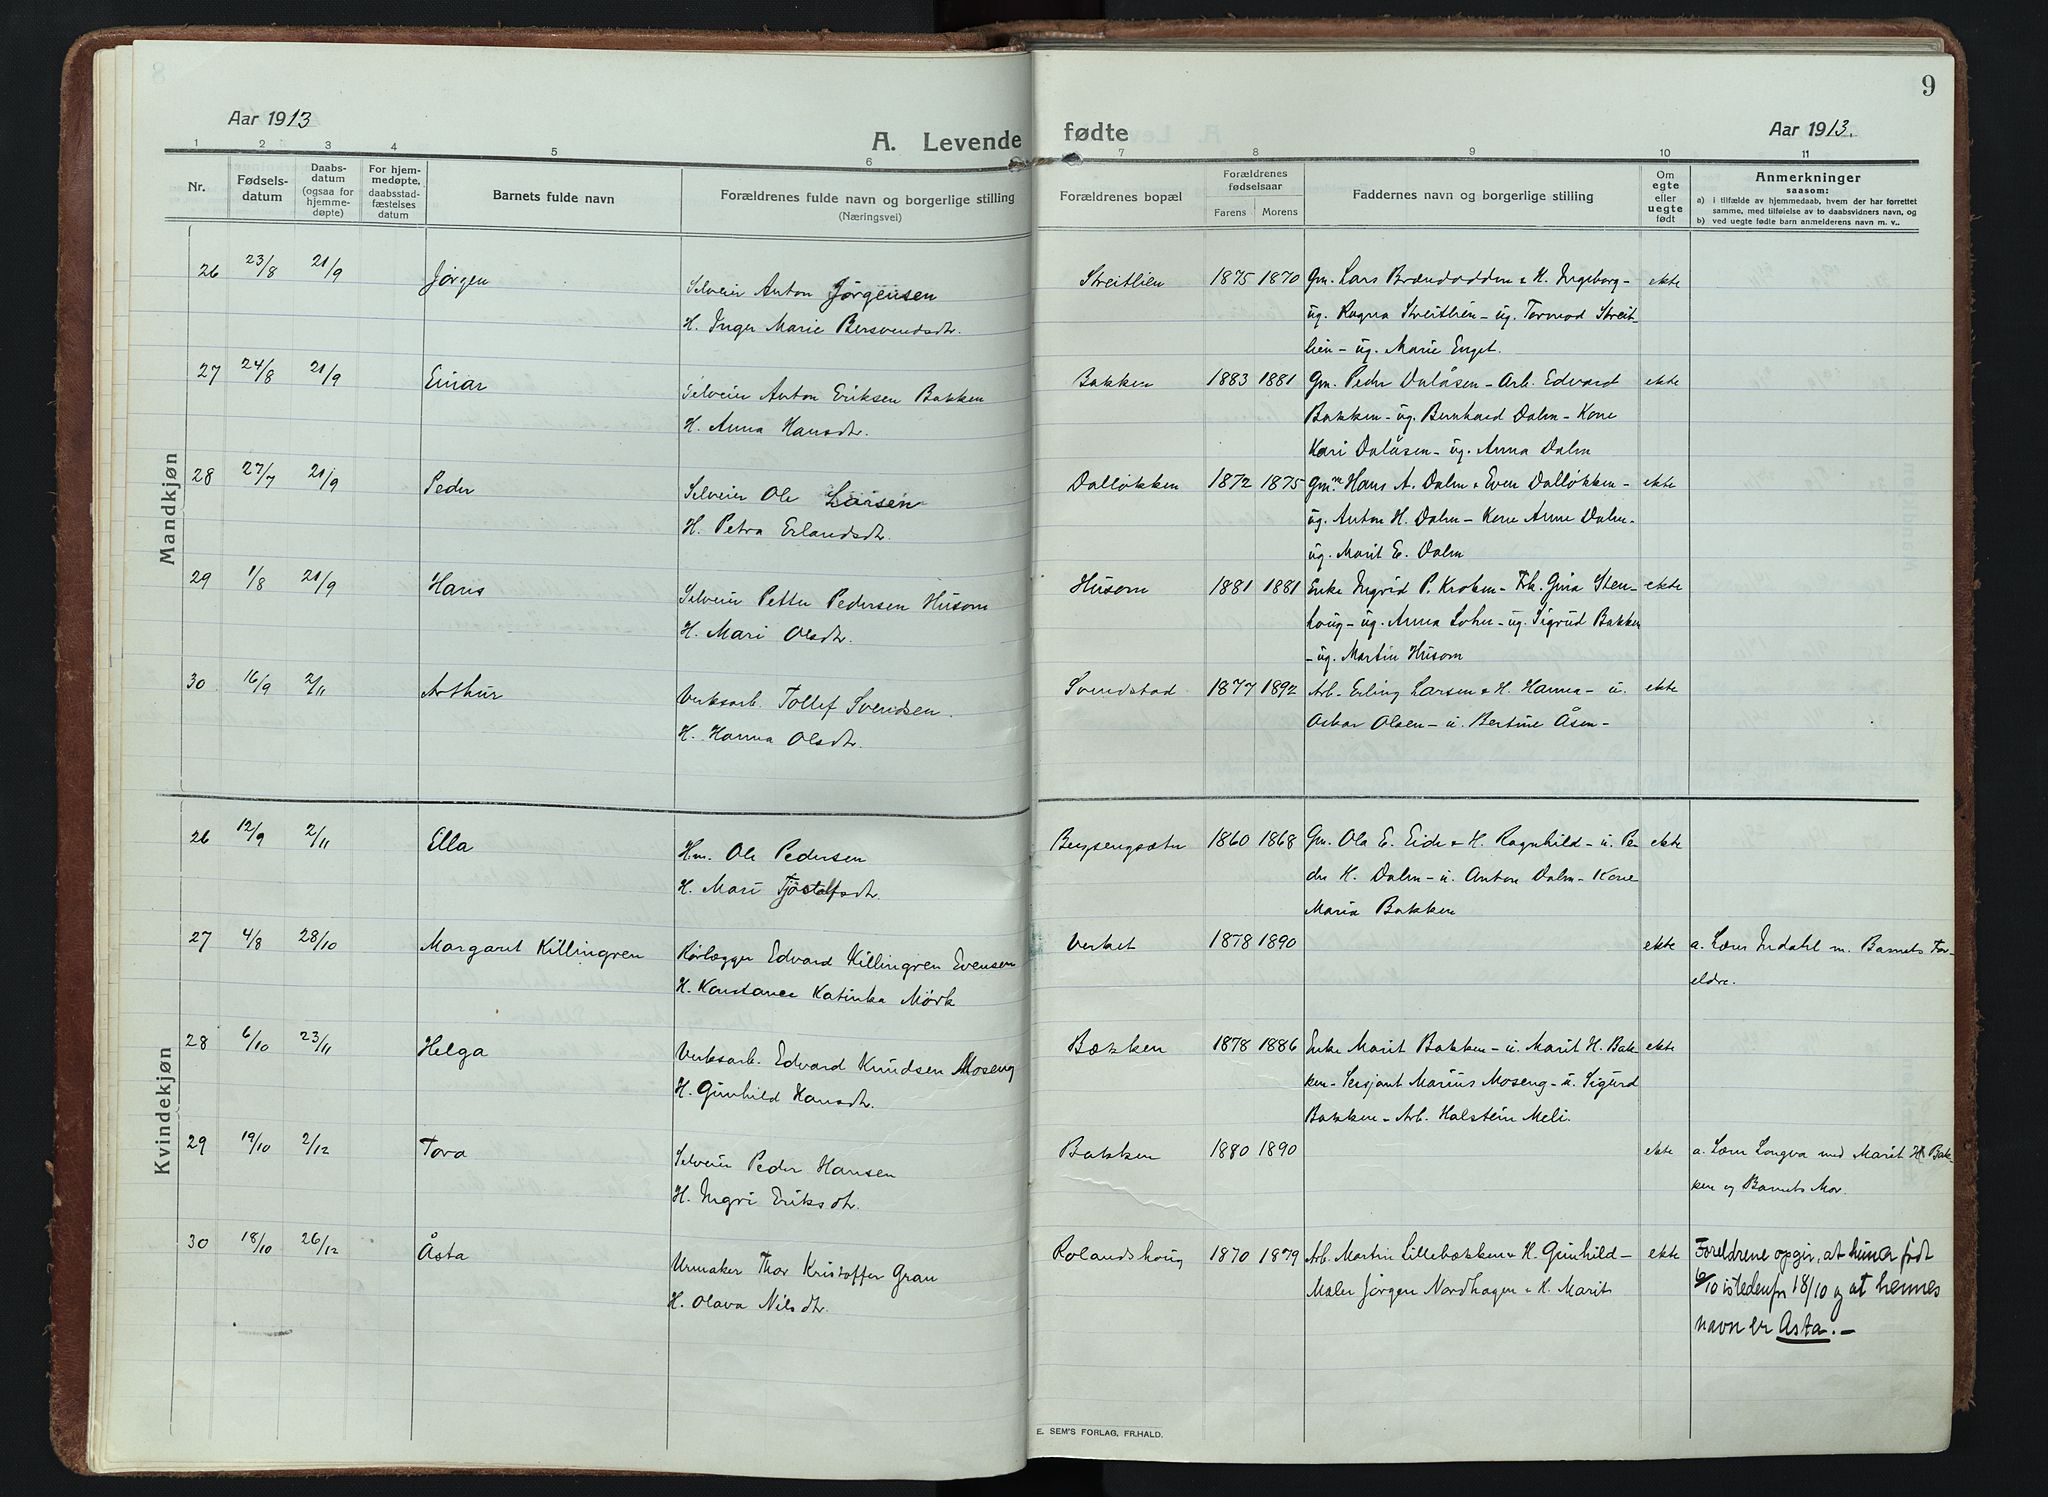 8
9
Aar 1913
A. Levende fødte
Aar 1913.
1 2 3 4 5 6 7 8 9 10 11
Nr.
Fødsels-
datum
Daabs-
datum
(ogsaa for
hjemme-
døpte)
For hjem-
medøpte,
daabsstad-
fæstelses
datum
Barnets fulde navn
Forældrenes fulde navn og borgerlige stilling
(Næringsvei)
Forældrenes bopæl
Forældrenes
fødselsaar
Farens Morens
Faddernes navn og borgerlige stilling
Om
egte
eller
uegte
født
Anmerkninger
saasom:
a) i tilfælde av hjemmedaab, hvem der har forrettet
samme, med tilføielse av to daabsvidners navn, og
b) ved uegte fødte barn anmelderens navn m. v..
Mandkjøn
26 23/8 21/9 Jørgen Selveier Anton Jørgensen Streitlien 1875 1870 Gm. Lars Brændodden & H. Ingeborg- ekte
H. Inger Marie Bersvendsdtr. ug. Ragna Streitlien - ug. Tormod Streit-
lien - ug. Marie Enget.
27 24/8 21/9 Einar Selveier Anton Eriksen Bakken Bakken 1883 1881 Gm. Peder Dalåsen - Arb. Edvard ekte
H. Anna Hansdtr. Bakken - ug. Bernhard Dalm - Kone
Kari Dalåsen - ug. Anna Dalm
28 27/7 21/9 Peder Selveier Ole Larsen Dalløkken 1872 1875 Gm. Hans A. Dalm & Even Dalløkken - ekte
H. Petra Erlandsdtr. ug. Anton H. Dalm - Kone Anne Dalm -
ug. Marit E. Dalm
29 1/8 21/9 Hans Selveier Petter Pedersen Husom Husom 1881 1881 Enke Ingrid P. Kroken - Frk. Gina Sten- ekte
H. Mari Olsdtr. houg - ug. Anna Lohn - ug. Sigrud Bakken
- ug. Martin Husom
30 16/9 2/11 Arthur Verksarb. Tollef Svendsen. Svendstad 1877 1892 Arb. Erling Larsen & H. Hanna - u. ekte
H. Hanna Olsdtr. Oskar Olsen - u. Bertine Åsen -
Kvindekjøn
26 12/9 2/11 Ella Hm. Ole Pedersen Bergsengsæter 1860 1868 Gm. Ola E. Eide & H. Ragnhild - u. Pe- ekte
H. Mari Tjøstolfsdtr. der H. Dalm - u. Anton Dalm - Kone
Maria Bakken
27 4/8 28/10 Margaret Killingren Rørlægger Edvard Killingren Evensen Verket 1878 1890 ekte a. Lærer Indahl m. Barnets For-
H. Konstance Katinka Mörk eldre.
28 6/10 23/11 Helga Verksarb. Edvard Knudsen Moseng Bækken 1878 1886 Enke Marit Bakken - u. Marit H. Bak- ekte
H. Gunhild Hansdtr. ken - Sersjant Marius Moseng - u. Sigurd
Bakken - Arb. Halstein Meli.
29 19/10 2/12 Tora Selveier Peder Hansen Bakken 1880 1890 ekte a. Lærer Longva med Marit H Bak-
H. Ingri Eriksdtr. ken og Barnets Mor.
30 18/10 26/12 Åsta Urmaker Thor Kristoffer Gran Rolandshoug 1870 1879 Arb. Martin Lillebækken & H. Gunhild - ekte Foreldrene opgir, at hun er født
H. Olava Nilsdtr. Maler Jørgen Nordhagen & H. Marit 6/10 istedenfr 18/10 og at hennes
navn er Asta. -
E. SEM'S FORLAG, FR.HALD.